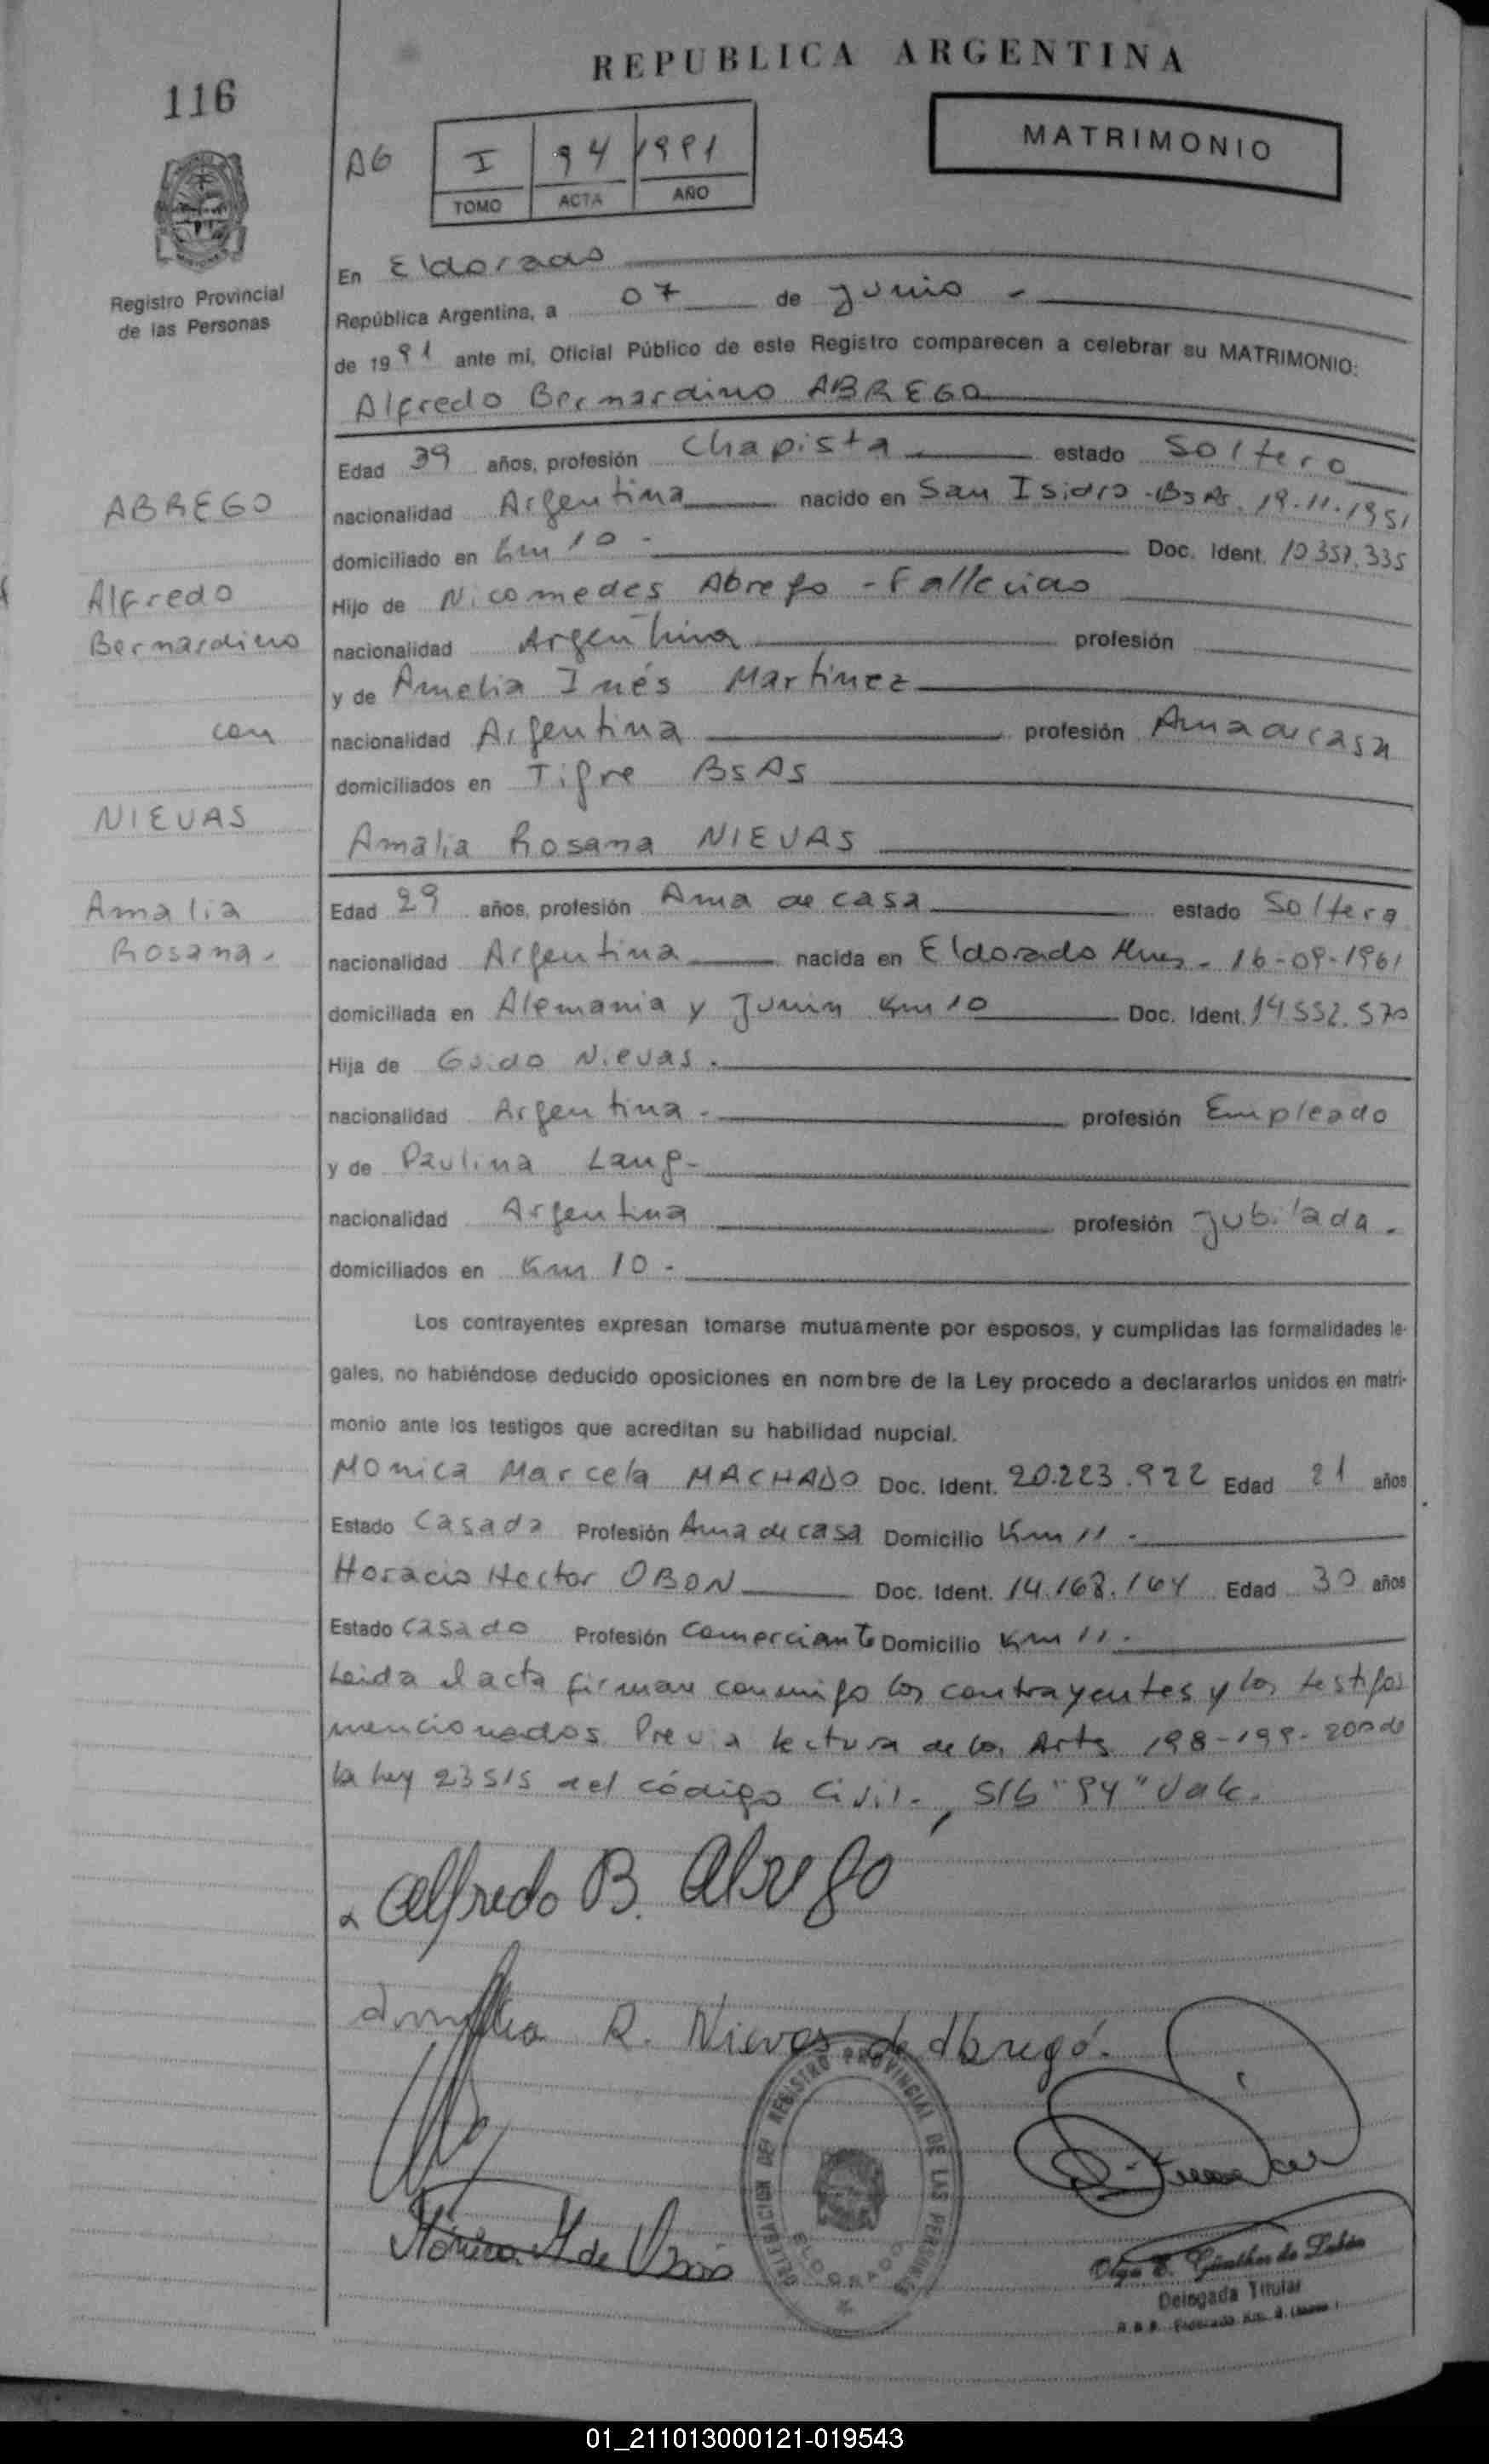 REPUBLICA ARGENTINA
116
MATRIMONIO
AG
I 94 1991
TOMO ACTA AÑO
Registro Provincial
de las Personas
En Eldorado
República Argentina, a 07 de Junio -
de 1991 ante mi, Oficial Público de este Registro comparecen a celebrar su MATRIMONIO:
Alfredo Bernardino ABREGO
Edad 39 años, profesión Chapista estado Soltero
ABREGO
nacionalidad Argentina nacido en San Isidro - Bs As. 19-11-1951
domiciliado en Km 10 - Doc. Ident. 10.357.335
Alfredo
Hijo de Nicomedes Abrego - Fallecido
Bernardino
nacionalidad Argentina profesión
y de Amelia Inés Martinez
con
nacionalidad Argentina profesión Ama de casa
domiciliados en Tigre BsAs
NIEVAS
Amalia Rosana NIEVAS
Amalia
Edad 29 años, profesión Ama de casa estado Soltera
Rosana.
nacionalidad Argentina nacida en Eldorado Mnes - 16-09-1961
domiciliada en Alemania y Junin Km 10 Doc. Ident. 14.552.570
Hija de Guido Nievas.
nacionalidad Argentina. profesión Empleado
y de Paulina Lang-
nacionalidad Argentina profesión Jubilada.
domiciliados en Km 10 -
Los contrayentes expresan tomarse mutuamente por esposos, y cumplidas las formalidades le-
gales, no habiéndose deducido oposiciones en nombre de la Ley procedo a declararlos unidos en matri-
monio ante los testigos que acreditan su habilidad nupcial.
Monica Marcela MACHADO Doc. Ident. 20.223.922 Edad 21 años
Estado Casada Profesión Ama de casa Domicilio Km 11 -
Horacio Hector OBON Doc. Ident. 14.168.164 Edad 30 años
Estado Casado Profesión Comerciante Domicilio Km 11.
Leida el acta firman conmigo los contrayentes y los testigos
mencionados. Previa lectura de los Arts 198-199-200 de
la ley 23515 del código Civil-, S/b "94" Vale.
Alfredo B. Abrego
Amalia R. Nievas de Abregó.
DELEGACION DEL REGISTRO PROVINCIAL DE LAS PERSONAS
ELDORADO
Mónica M de Obón
Olga E. Günther de
Delegada Titular
01_211013000121-019543